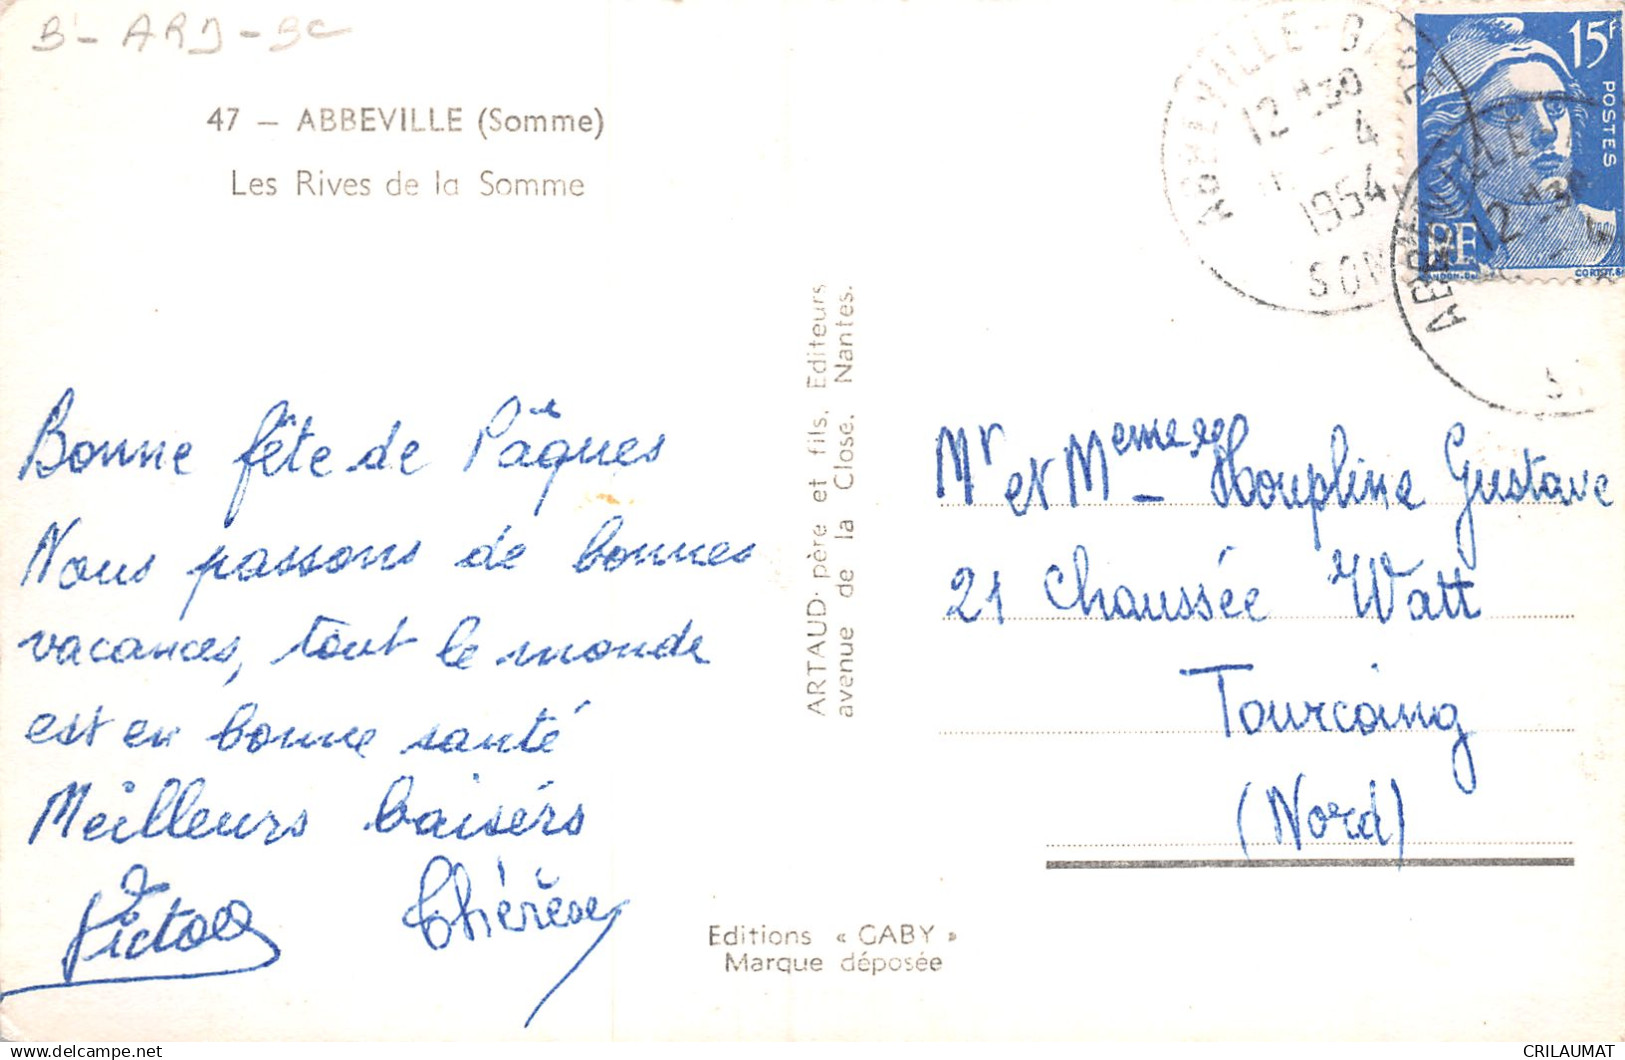 B - ARD - BC
47 — ABBEVILLE (Somme)
Les Rives de la Somme
Bonne fête de Pâques
Nous passons de bonnes
vacances, tout le monde
est en bonne santé
Meilleurs baisérs
Victor Thérèse
ARTAUD. père et fils. Editeurs
avenue de la Close. Nantes.
Editions « GABY »
Marque déposée
ABBEVILLE
12 H 30
4
1954
SOM
15F
POSTES
RF
GANDON
CORTOT
ABBEVILLE
12 H 30
Mr et Meme Houpline Gustave
21 Chaussée Watt
Tourcoing
(Nord)
CRILAUMAT